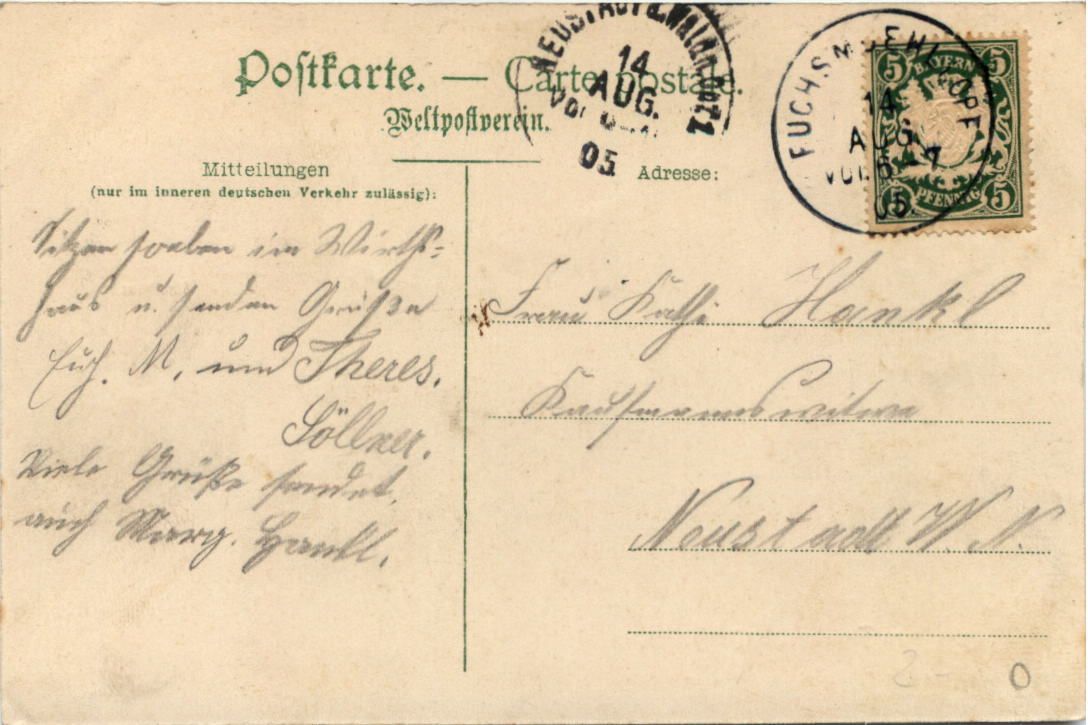 Postkarte. — Carte postale.
Weltpostverein.
NEUSTADT a. Waldn. Pst. 1
14
AUG.
05
FUCHSMUEHL OPF
14
AUG
VOR. 6-7
05.
5 BAYERN 5
5 PFENNIG 5
Mitteilungen
(nur im inneren deutschen Verkehr zulässig):
Adresse:
Sitzen soeben im Wirths-
haus u. senden Grüße
Euch. M. und Theres.
Söllner.
Viele Grüße sendet
auch Marg. Hankl.
Frau Kathi Hankl
Kaufmannswitwe
Neustadt W. N.
0